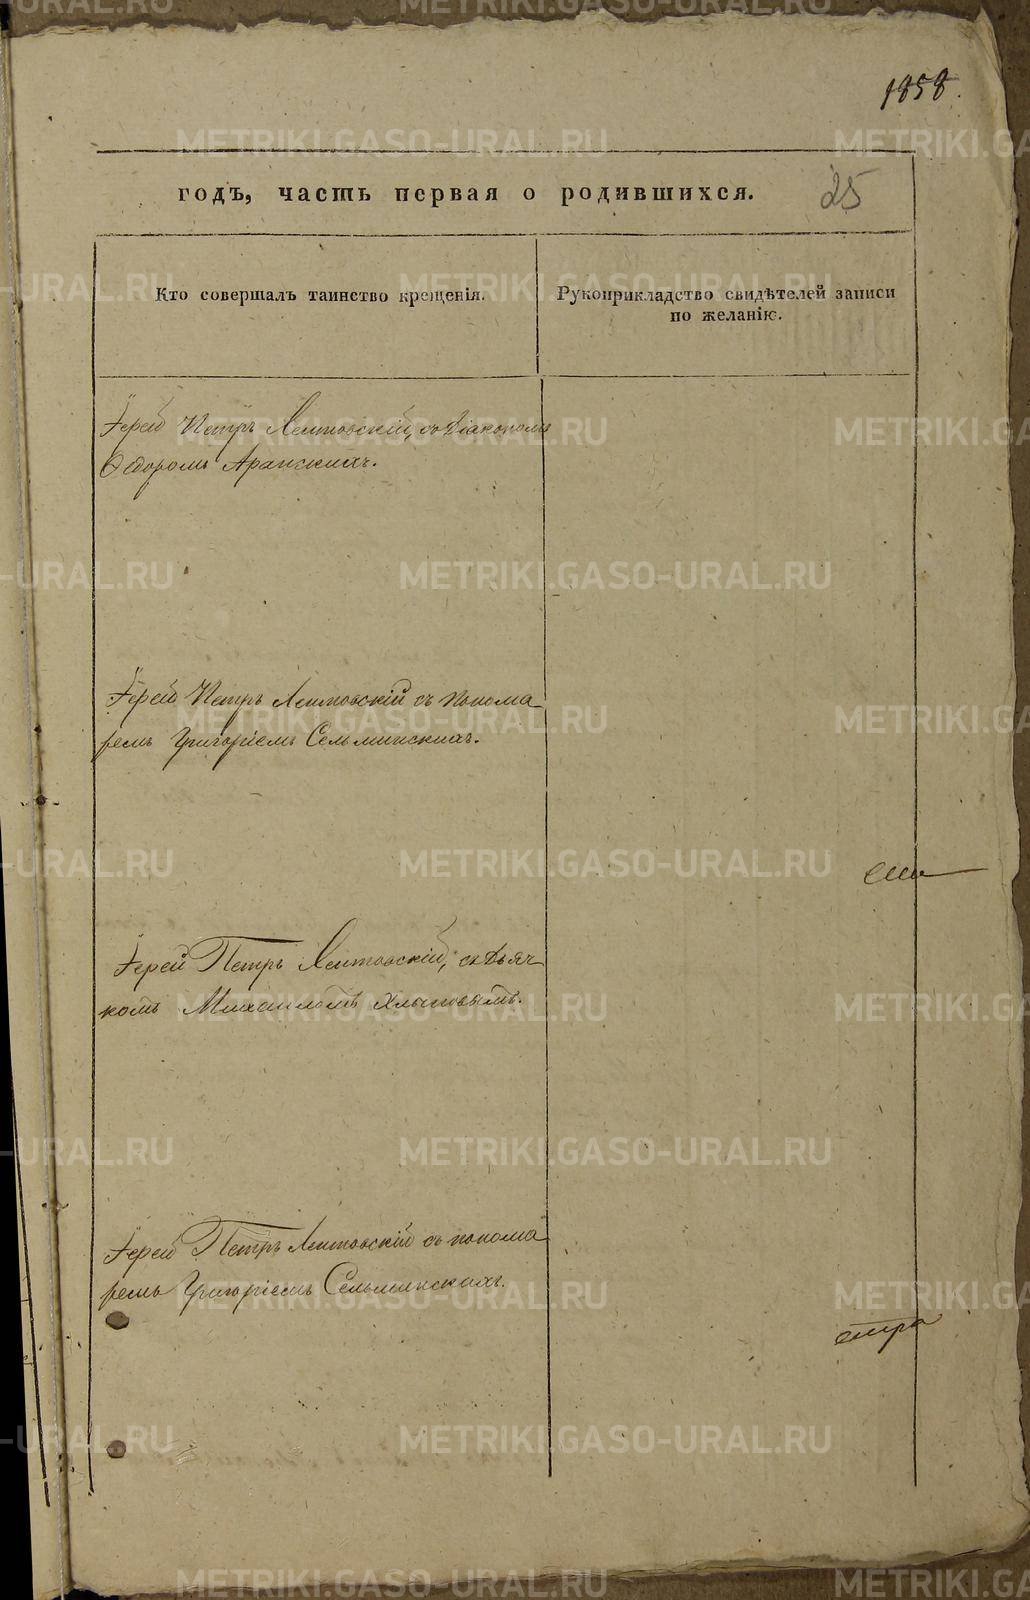 1858.
годъ, часть первая о родившихся. 25
Кто совершалъ таинство крещенія.
Рукоприкладство свидѣтелей записи
по желанію.
Іерей Петръ Лентовскій, со діакономъ
Ѳедоромъ
Іерей Петръ Лентовскій съ понома
ремъ Григоріемъ Сельминскихъ.
Іерей Петръ Лентовскій, съ дьяч
комъ Михаиломъ Хлыновымъ.
Іерей Петръ Лентовскій съ понома
ремъ Григоріемъ Сельминскихъ.
METRIKI.GASO-URAL.RU